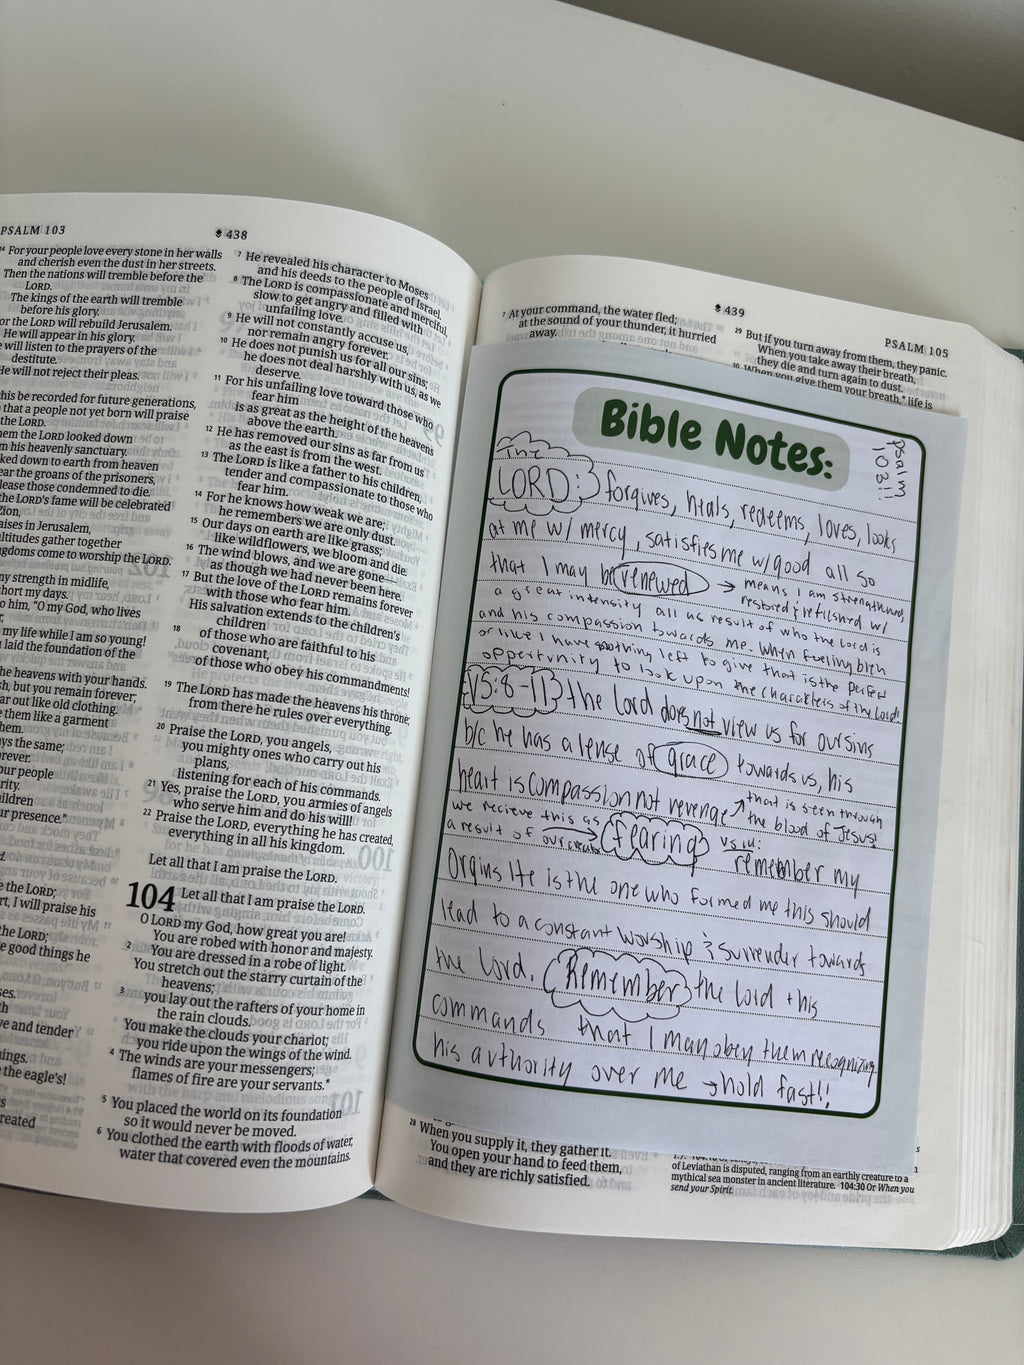 PSALM 103
438
14 For your people love every stone in her walls
and cherish even the dust in her streets.
Then the nations will tremble before the
LORD.
The kings of the earth will tremble
before his glory.
or the LORD will rebuild Jerusalem.
He will appear in his glory.
e will listen to the prayers of the
destitute.
He will not reject their pleas.
this be recorded for future generations,
that a people not yet born will praise
the LORD.
hem the LORD looked down
m his heavenly sanctuary.
ked down to earth from heaven
ear the groans of the prisoners,
lease those condemned to die.
the LORD's fame will be celebrated
Zion,
aises in Jerusalem,
ultitudes gather together
ngdoms come to worship the LORD.
my strength in midlife,
short my days.
o him, "O my God, who lives
my life while I am so young!
laid the foundation of the
he heavens with your hands.
sh, but you remain forever;
ar out like old clothing.
e them like a garment
hem.
ays the same;
orever.
our people
rity.
hildren
ur presence."
e the LORD;
rt, I will praise his
he LORD;
e good things he
ses.
th
ve and tender
nings.
the eagle's!
s
reated
7 He revealed his character to Moses
and his deeds to the people of Israel.
8 The LORD is compassionate and merciful,
slow to get angry and filled with
unfailing love.
9 He will not constantly accuse us,
nor remain angry forever.
10 He does not punish us for all our sins;
he does not deal harshly with us, as we
deserve.
11 For his unfailing love toward those who
fear him
is as great as the height of the heavens
above the earth.
12 He has removed our sins as far from us
as the east is from the west.
13 The LORD is like a father to his children,
tender and compassionate to those who
fear him.
14 For he knows how weak we are;
he remembers we are only dust.
15 Our days on earth are like grass;
like wildflowers, we bloom and die.
16 The wind blows, and we are gone—
as though we had never been here.
17 But the love of the LORD remains forever
with those who fear him.
His salvation extends to the children's
children
18 of those who are faithful to his
covenant,
of those who obey his commandments!
19 The LORD has made the heavens his throne;
from there he rules over everything.
20 Praise the LORD, you angels,
you mighty ones who carry out his
plans,
listening for each of his commands.
21 Yes, praise the LORD, you armies of angels
who serve him and do his will!
22 Praise the LORD, everything he has created,
everything in all his kingdom.
Let all that I am praise the LORD.
104 Let all that I am praise the LORD.
O LORD my God, how great you are!
You are robed with honor and majesty.
2 You are dressed in a robe of light.
You stretch out the starry curtain of the
heavens;
3 you lay out the rafters of your home in
the rain clouds.
You make the clouds your chariot;
you ride upon the wings of the wind.
4 The winds are your messengers;
flames of fire are your servants.*
5 You placed the world on its foundation
so it would never be moved.
6 You clothed the earth with floods of water,
water that covered even the mountains.
439
PSALM 105
7 At your command, the water fled;
at the sound of your thunder, it hurried
away.
29 But if you turn away from them, they panic.
When you take away their breath,
they die and turn again to dust.
30 When you give them your breath,* life is
Bible Notes:
psalm
103!!
The
LORD: forgives, heals, redeems, loves, looks
at me w/ mercy, satisfies me w/good all so
that I may be renewed → means I am strengthned,
restored & refilshed w/
a great intensity all as result of who the Lord is
and his compassion towards me. When fueling bleh
or like I have nothing left to give that is the perfect
opportunity to look upon the charakters of the Lord!
V5:8-11 the Lord does not view us for our sins
b/c he has a lense of grace towards us, his
heart is compassion not revenge → that is seen through
the blood of Jesus!
we recieve this as
a result of our creator fearing vs 14:
remember my
Orgins He is the one who formed me this should
lead to a constant worship & surrender towards
the Lord. Remember the lord + his
commands that I may obey them recognizing
his authority over me → hold fast!!
28 When you supply it, they gather it.
You open your hand to feed them,
and they are richly satisfied.
of Leviathan is disputed, ranging from an earthly creature to a
mythical sea monster in ancient literature. 104:30 Or When you
send your Spirit.